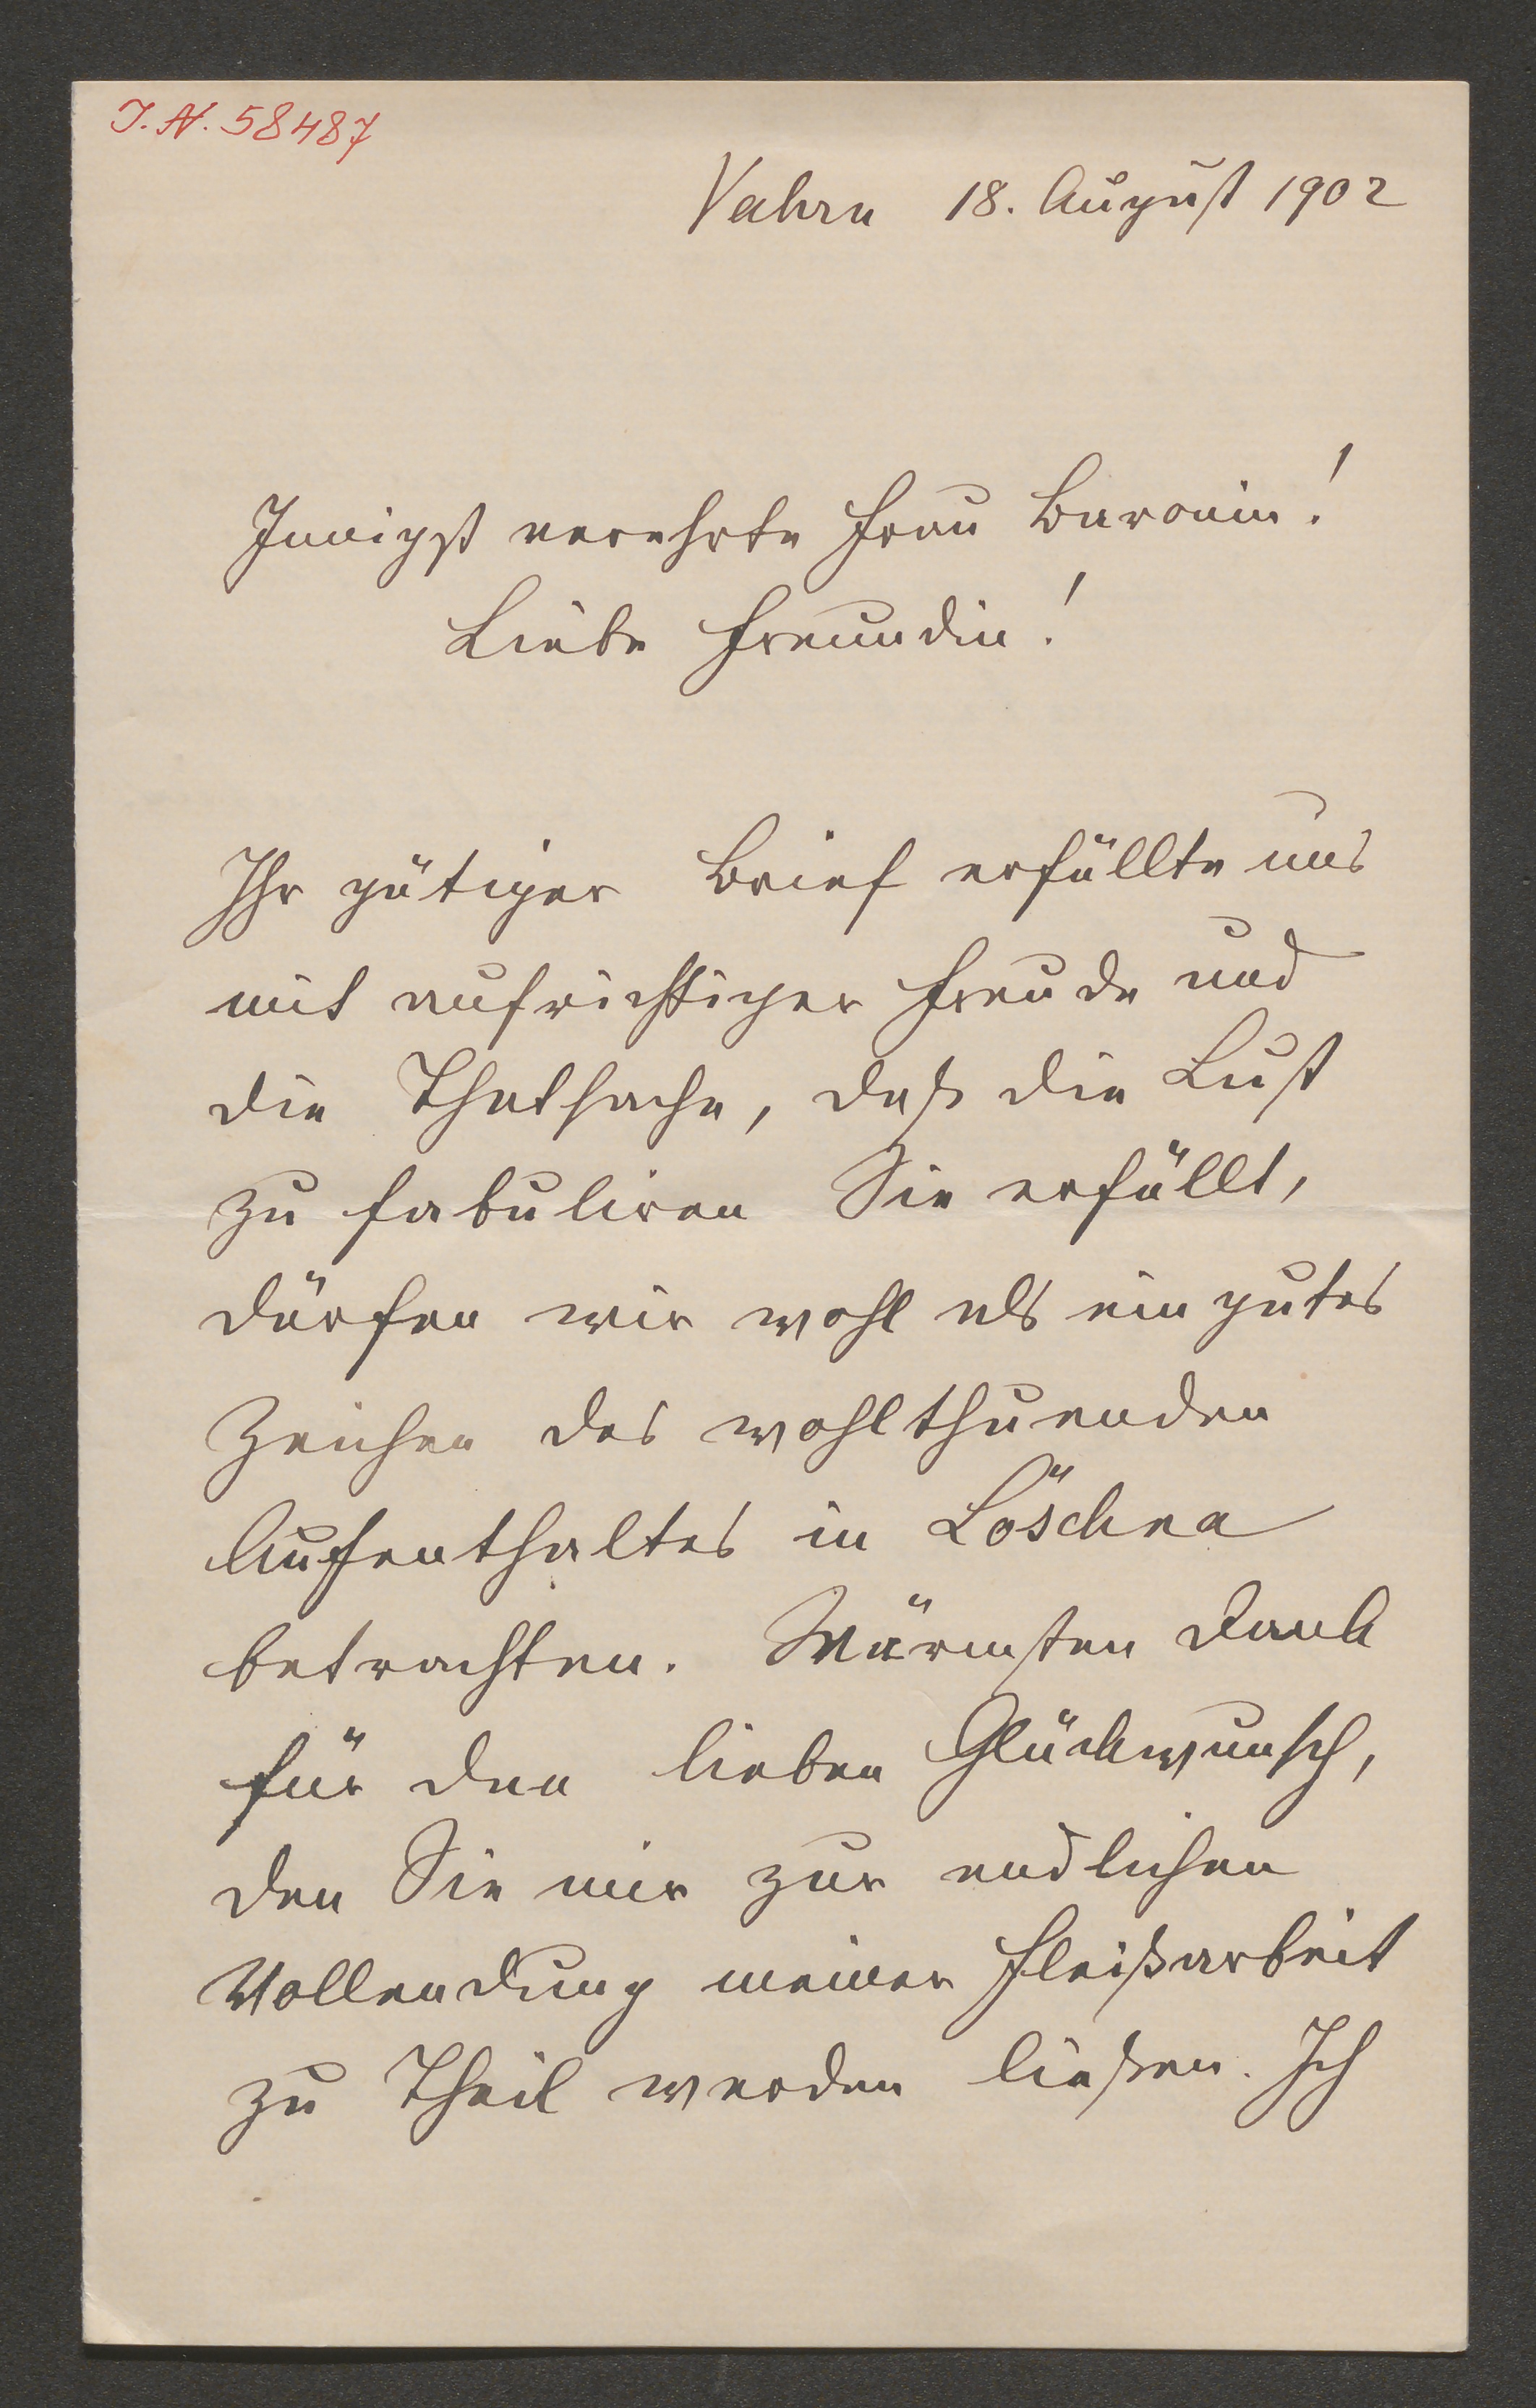 J. N. 58487
Vahrn 18. August 1902
Innigst verehrte Frau Baronin!
Liebe Freundin!
Ihr gütiger Brief erfüllte uns
mit aufrichtiger Freude und
die Thatsache, daß die Lust
zu fabuliren Sie erfüllt,
dürfen wir wohl als ein gutes
Zeichen des wohlthuenden
Aufenthaltes in Löschna
betrachten. Wärmsten Dank
für den lieben Glückwunsch,
den Sie mir zur endlichen
Vollendung meiner Fleißarbeit
zu Theil werden ließen. Ich